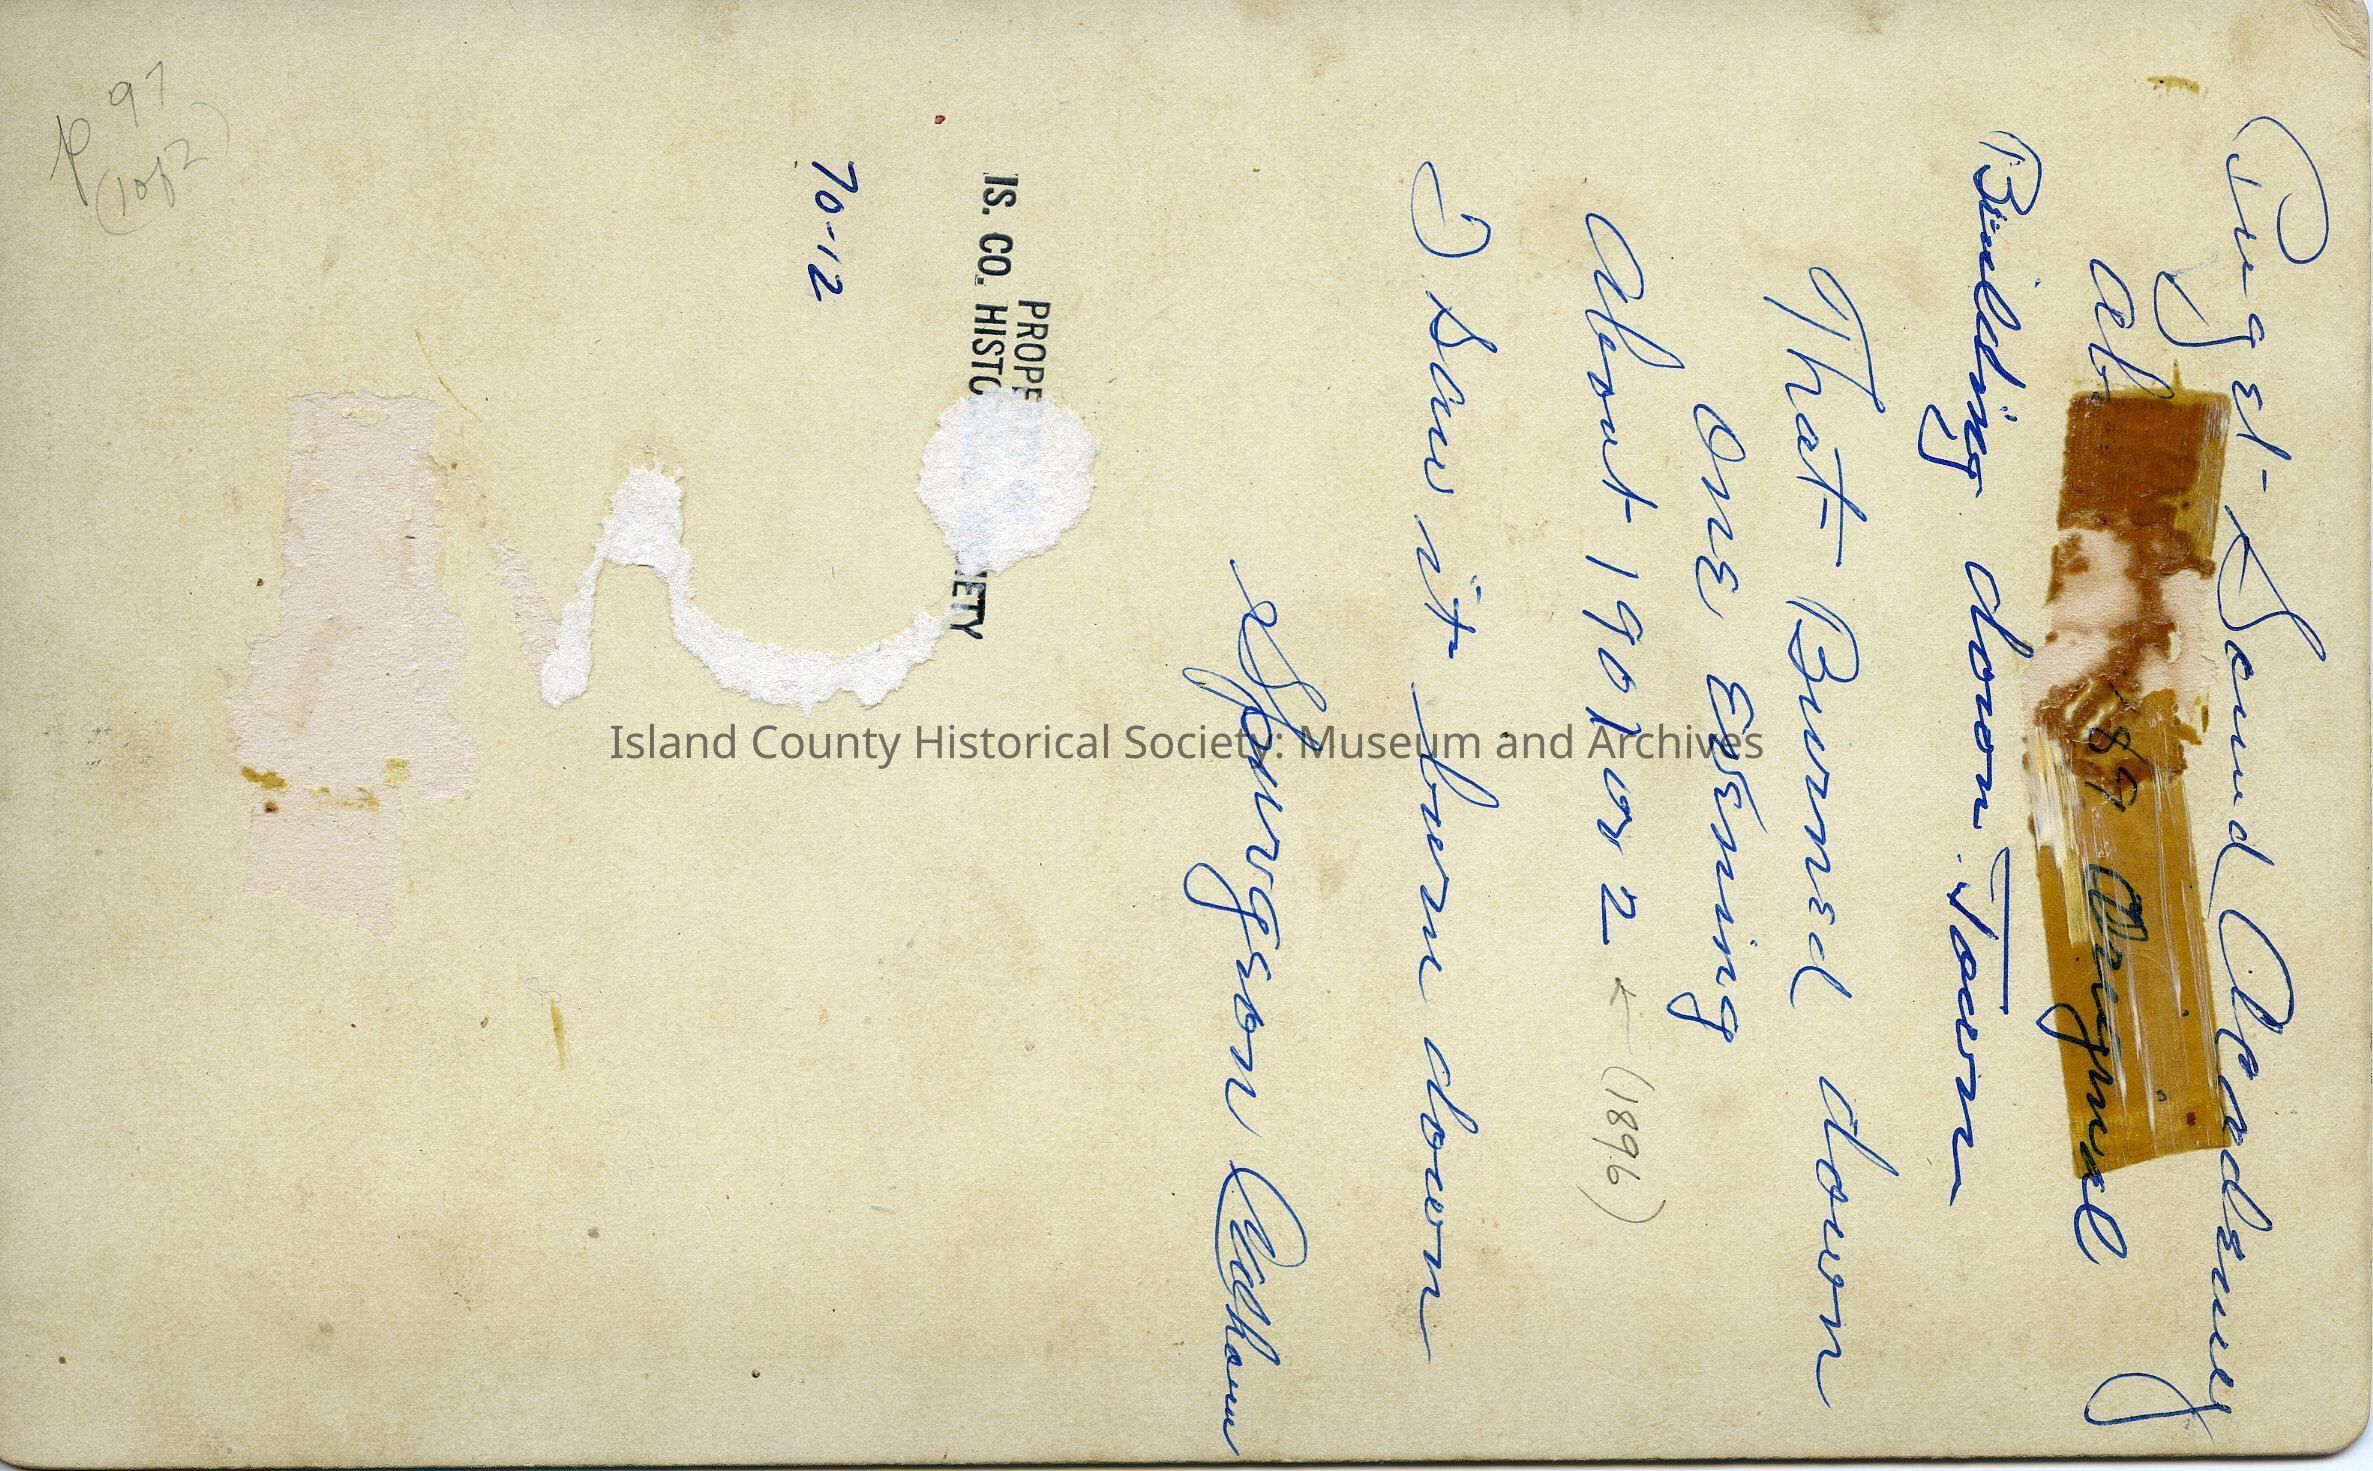 Puget Sound Academy
ab 189 Original
Building down Town
That Burned down
One Evening
About 1901 or 2 ← (1896)
I saw it burn down
Spurgeon Calhoun
PROPE
IS. CO. HISTO IETY
70-12
97
P (1 of 2)
Island County Historical Society: Museum and Archives